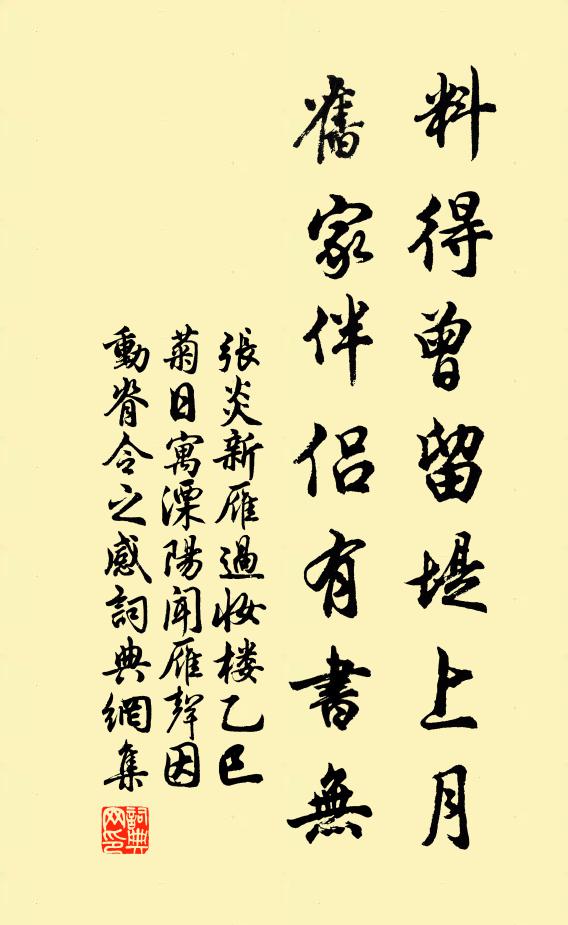 料得曾留堤上月
舊家伴侶有書無
張炎新雁過妝樓乙巳
菊日寓溧陽聞雁聲因
動脊令之感詞典網集
詞典網印